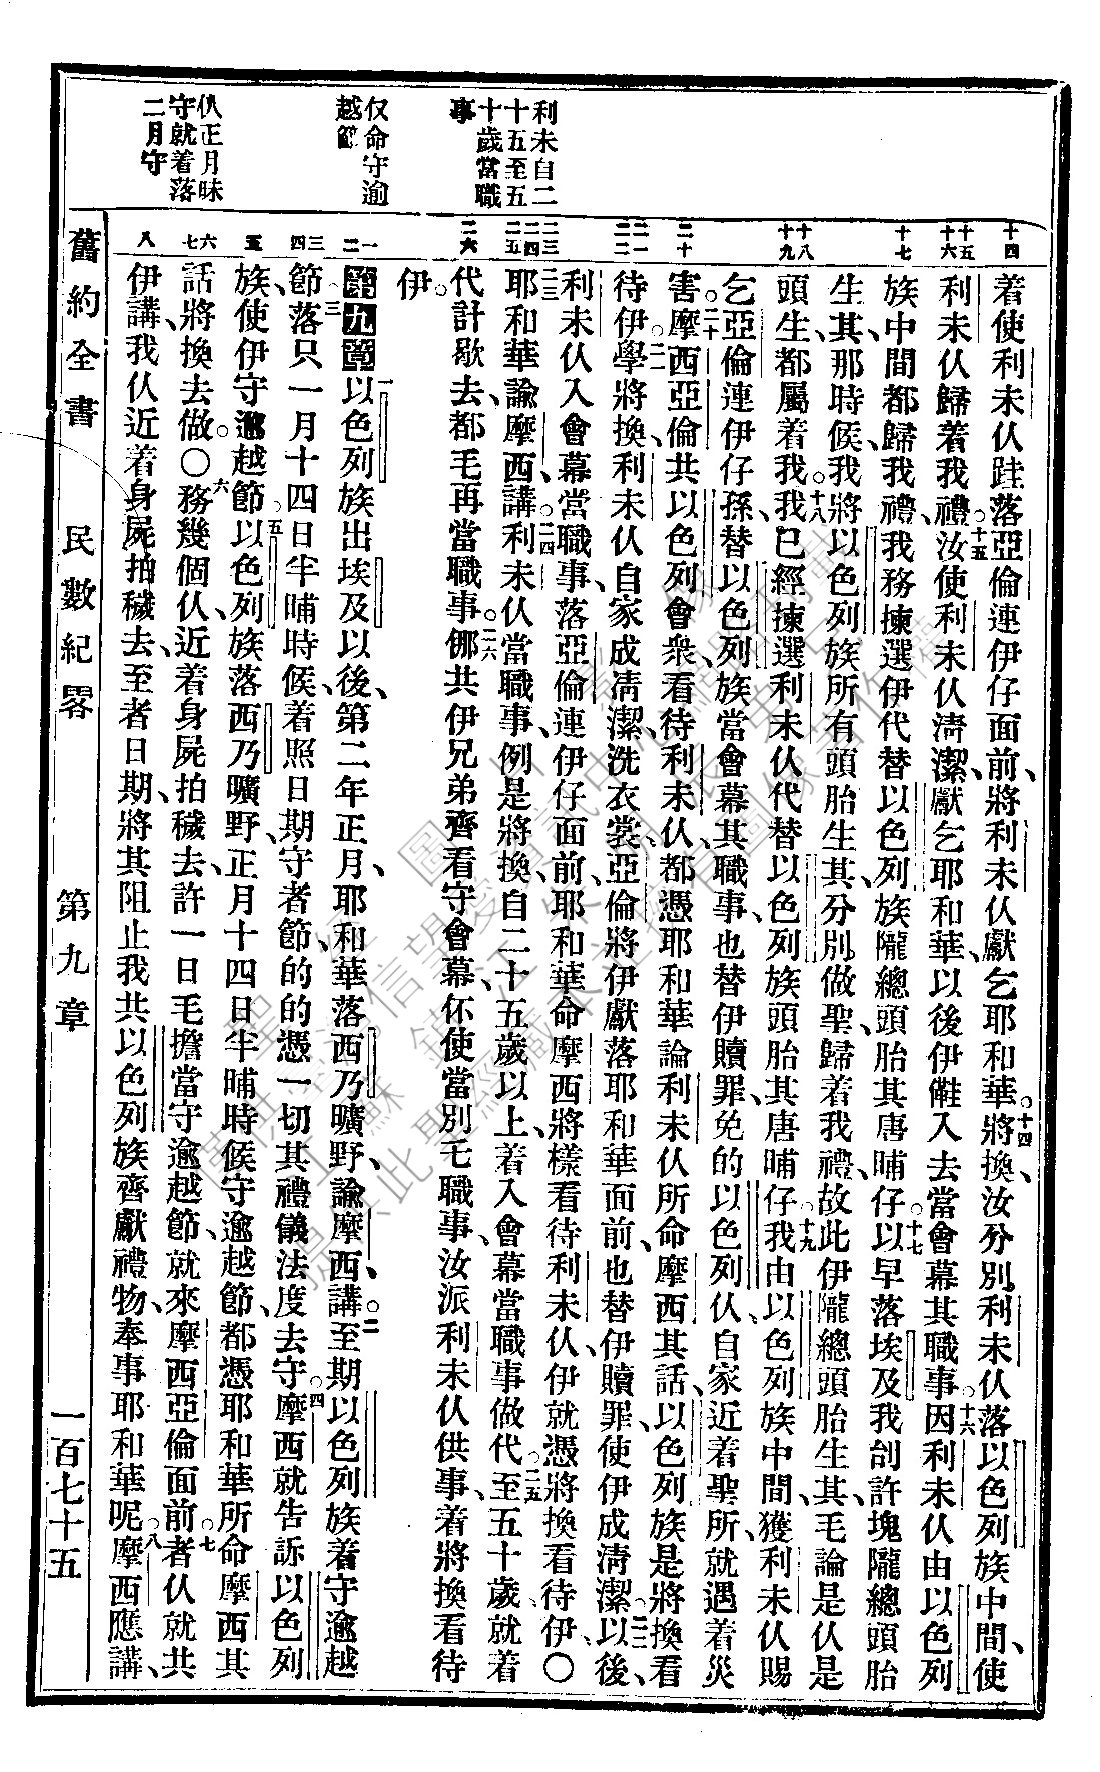 利未自二
十五至五
十歲當職
事
仅命守逾
越節
仈正月昧
守就着落
二月守
十四
十五
十六
十七
十八
十九
二十
二一
二二
二三
二四
二五
二六
一
二
三
四
五
六
七
八
着使利未仈跬落亞倫連伊仔面前、將利未仈獻乞耶和華。十四將換、汝分別利未仈落以色列族中間、使
利未仈歸着我禮。十五汝使利未仈清潔、獻乞耶和華、以後伊儺入去當會幕其職事。十六因利未仈由以色列
族中間都歸我禮、我務揀選伊代替以色列族隴總頭胎其唐晡仔。十七以早落埃及我刣許塊隴總頭胎
生其、那時候、我將以色列族所有頭胎生其、分別做聖、歸着我禮、故此伊隴總頭胎生其、毛論是仈是
頭生、都屬着我。十八我已經揀選利未仈代替以色列族頭胎其唐晡仔。十九我由以色列族中間、獲利未仈賜
乞亞倫連伊仔孫、替以色列族當會幕其職事、也替伊贖罪、免的以色列仈、自家近着聖所、就遇着災
害。二十摩西亞倫共以色列會衆、看待利未仈、都憑耶和華論利未仈所命摩西其話、以色列族是將換看
待伊。二一學將換、利未仈自家成清潔、洗衣裳、亞倫將伊獻落耶和華面前、也替伊贖罪、使伊成清潔。二二以後、
利未仈入會幕當職事、落亞倫連伊仔面前、耶和華命摩西將樣看待利未仈、伊就憑將換看待伊、〇
二三耶和華諭摩西講、二四利未仈當職事、例是將換、自二十五歲以上、着入會幕當職事做代。二五至五十歲、就着
代計歇去、都毛再當職事。二六㑚共伊兄弟齊看守會幕、伓使當別乇職事、汝派利未仈供事、着將換看待
伊。
第九章一以色列族出埃及以後、第二年正月、耶和華落西乃曠野、諭摩西講、二至期以色列族着守逾越
節。三落只一月十四日半晡時候、着照日期守者節、的的憑一切其禮儀法度去守。四摩西就告訴以色列
族、使伊守逾越節。五以色列族落西乃曠野、正月十四日半晡時候守逾越節、都憑耶和華所命摩西其
話、將換去做。〇六務幾個仈、近着身屍拍穢去、許一日毛擔當守逾越節、就來摩西亞倫面前。七者仈就共
伊講、我仈近着身屍拍穢去、至者日期、將其阻止我共以色列族齊獻禮物、奉事耶和華呢。八摩西應講、
舊約全書 民數紀畧 第九章 一百七十五